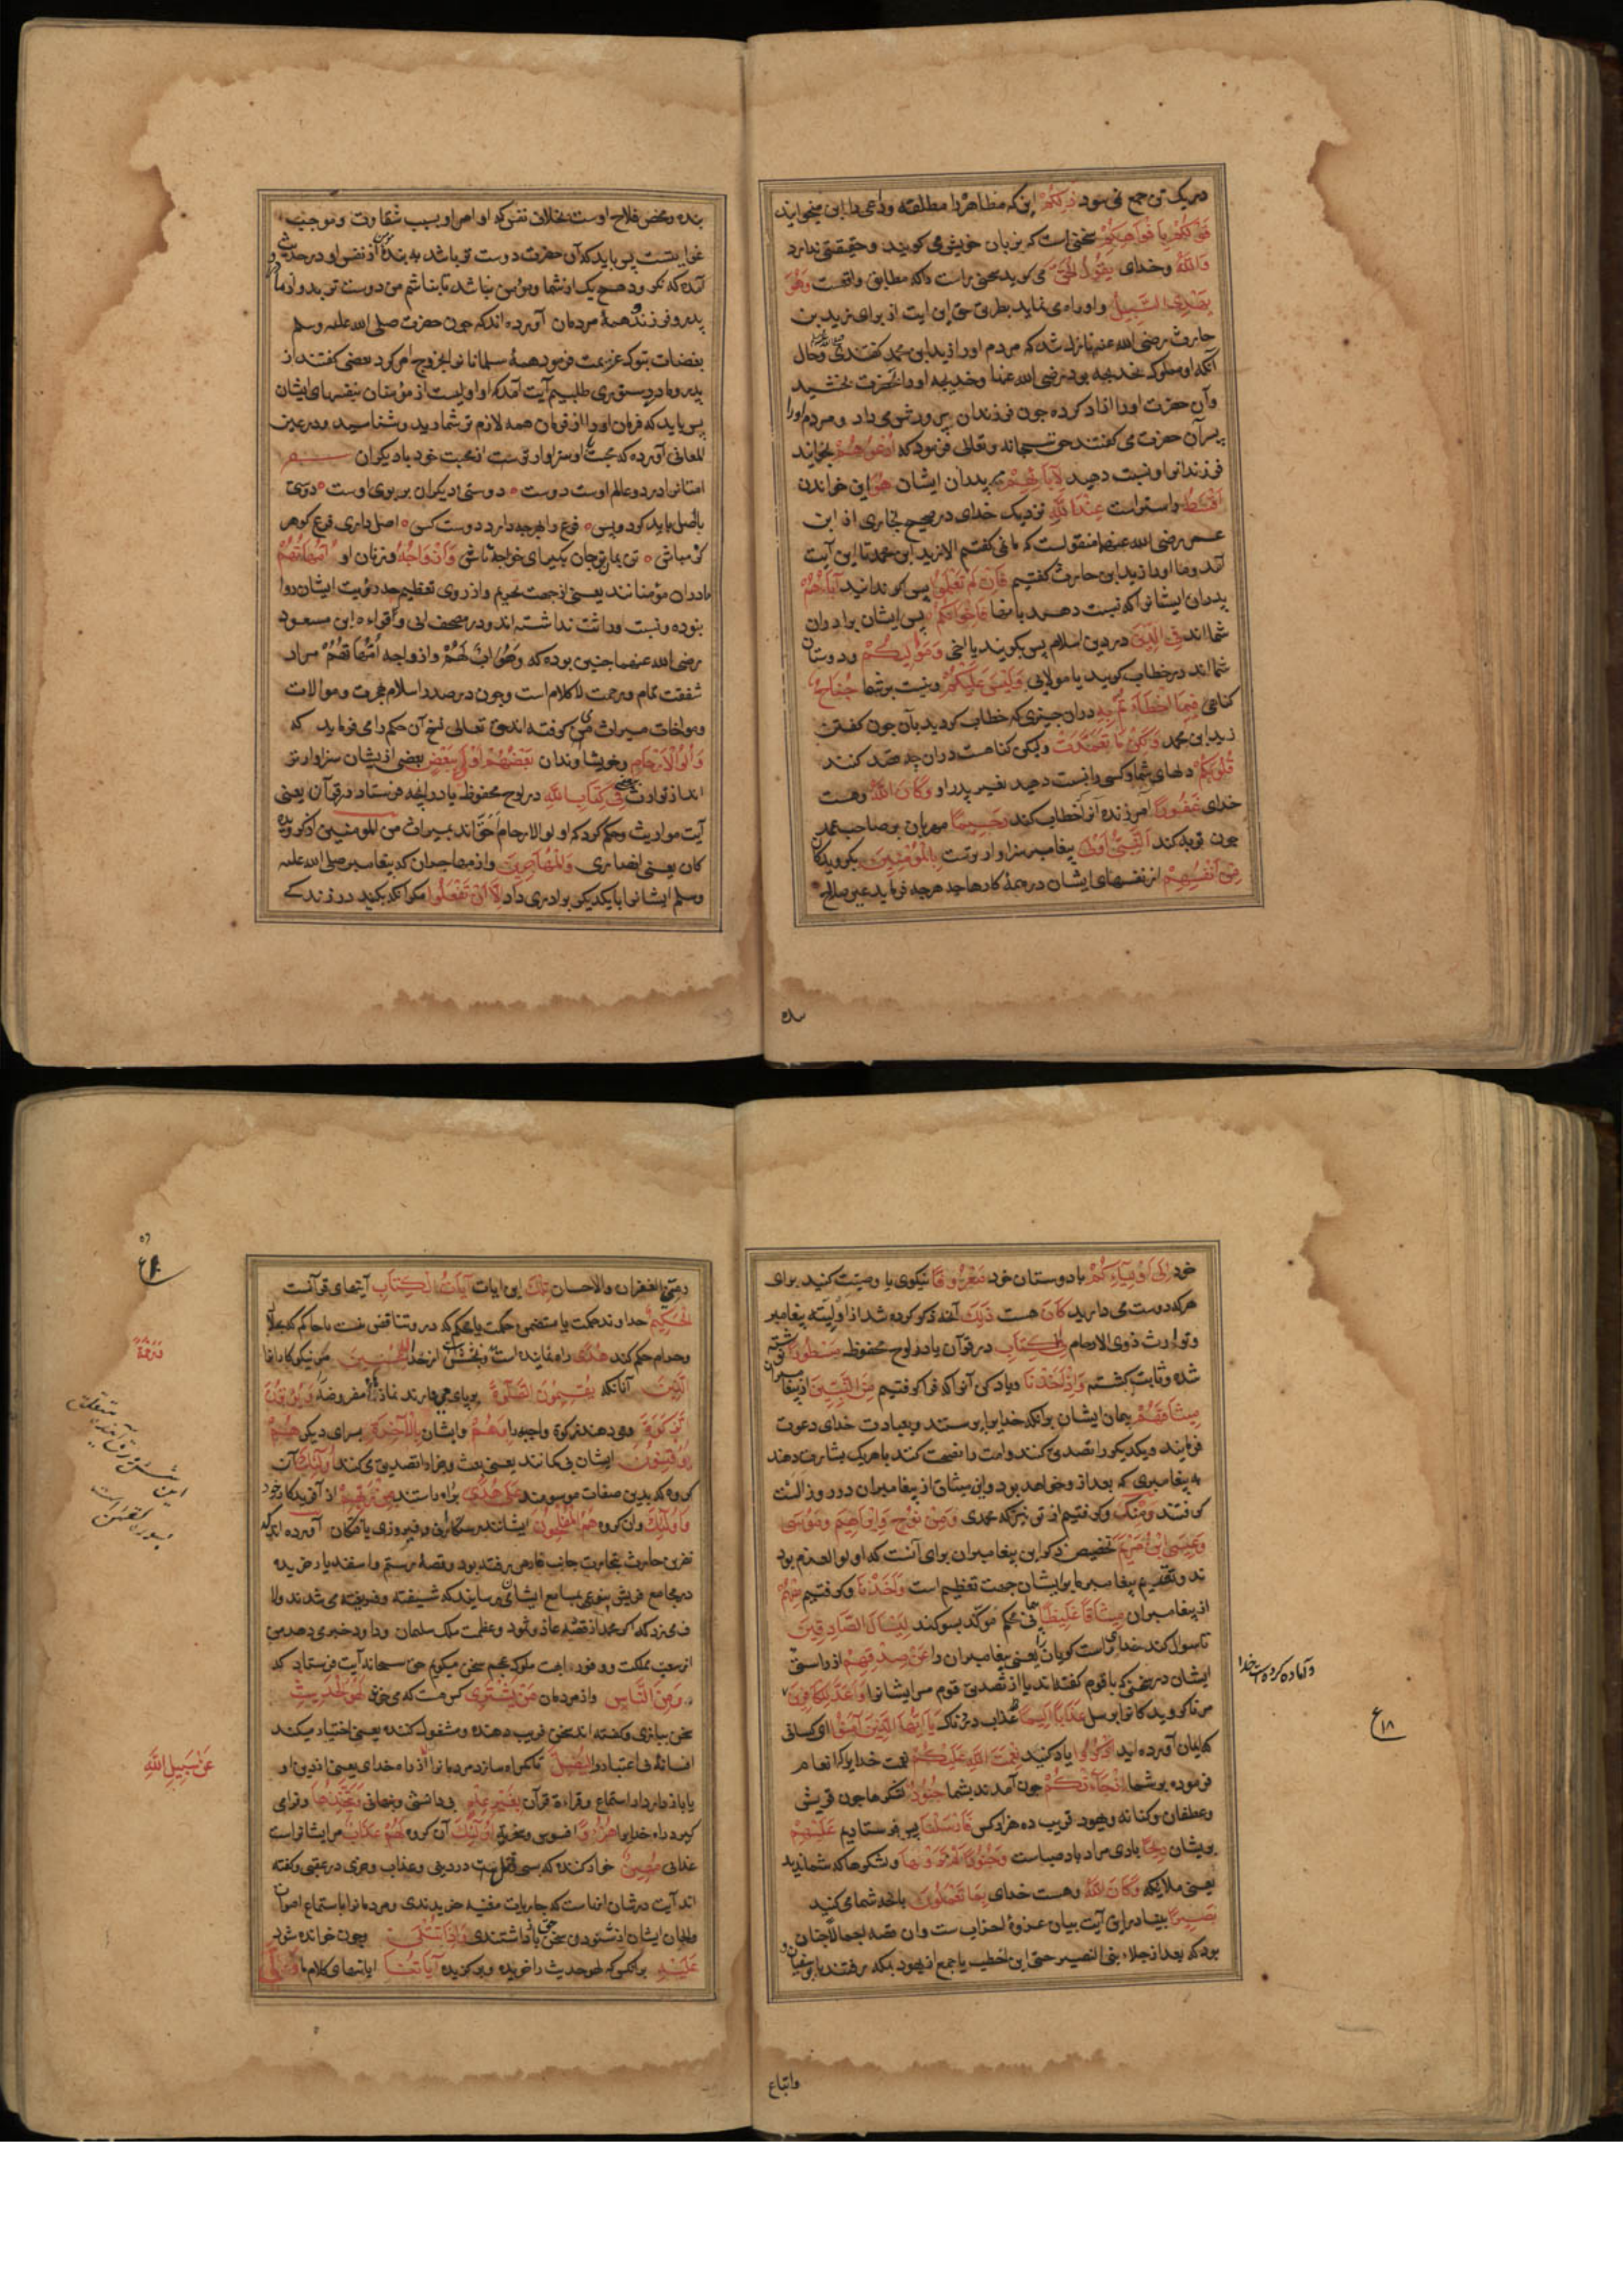 در یک تن جمع نمی شود ذلِكُمْ این که مظاهر را مطلقه و دعی را ابن میخوانید
قَوْلُكُمْ بِأَفْوَاهِكُمْ سخنی است که بزبان خویش می کویند و حقیقتی ندارد
وَاللَّهُ وخدای یَقُولُ الْحَقَّ می کوید سخنی راست را که مطابق واقعست وَهُوَ
يَهْدِي السَّبِيلَ واو راه می نماید بطریق حق این ایت از برای زید بن
حارث رضی الله عنه نازل شد که مردم اورا زید ابن محمد کفتندی وحال
آنکه او مملوک خدیجه بود رضی الله عنها وخدیجه اورا بحضرت بخشید
وآن حضرت اورا ازاد کرده چون فرزندان پرورش می داد ومردم اورا
پسر آن حضرت می کفتند حق سبحانه وتعالی فرمود که اُدْعُوهُمْ بخوانید
فرزندانرا ونسبت دهید لِآبَائِهِمْ بپدران ایشان هُوَ این خواندن
أَقْسَطُ راستتراست عِنْدَ اللَّهِ نزدیک خدای در صحیح بخاری از ابن
عمر رضی الله عنهما منقولست که ما نمی کفتیم الا زید ابن محمد تا این آیت
آمد وما اورا زید ابن حارث کفتیم فَإِنْ لَمْ تَعْلَمُوا پس کر ندانید آبَاءَهُمْ
پدران ایشانرا که نسبت دهید بانها فَإِخْوَانُكُمْ پس ایشان برادران
شما اند فِي الدِّينِ در دین اسلام پس بکویند یا اخی وَمَوَالِيكُمْ ودوستان
شما اند در خطاب کویید یا مولای وَلَيْسَ عَلَيْكُمْ ونیست بر شما جُنَاحٌ
کناهی فِيمَا أَخْطَأْتُمْ بِهِ دران چیزی که خطاب کردید بآن چون کفتن
زید ابن محمد وَلَكِنْ مَا تَعَمَّدَتْ ولیکن کناهست دران چه قصد کنند
قُلُوبُكُمْ دلهای شما وکسی را نسبت دهید بغیر پدر او وَكَانَ اللَّهُ وهست
خدای غَفُورًا امرزنده آنرا خطاب کند رَحِيمًا مهربان بر صاحب عمد
چون توبه کند النَّبِيُّ أَوْلَى پیغامبر سزاوارترست بِالْمُؤْمِنِينَ بکرویدکان
مِنْ أَنْفُسِهِمْ از نفسهای ایشان در همهٔ کارها چه هرچه فرماید عین صلاح
بنده ومحض فلاح اوست بخلاف نفس که اوامر او بسبب شقاوت وموجب
پدر وفرزند وهمهٔ مردمان آورده اند که چون حضرت صلی الله علیه وسلم
بغضات تبوک عزیمت فرمود همهٔ مسلمانانرا بخروج امر کرد بعضی کفتند از
پدر ومادر دستوری طلبیم آیت آمد که او اولیست از مؤمنان بنفسهای ایشان
پس باید که فرمان اورا از فرمان همه لازم تر شمارید وشناسید ودر عین
المعانی آورده که محبت او سزاوارترست از محبت خود با دیکران
امتانرا در دو عالم اوست دوست ٥ دوستی دیکران بر بوی اوست ٥ دوستی
باصل باید کرد وپس ٥ فرع را بهر چه دارد دوست کس ٥ اصل داری فرع کو هر
کز مباش ٥ تن بمان وجان بکیر ای خواجه تاش وَأَزْوَاجُهُ وزنان او أُمَّهَاتُهُمْ
مادران مؤمنانند یعنی از جهت تحریم واز روی تعظیم چه در رؤیت ایشان روا
نبوده ونسبت وراثت نداشته اند ودر مصحف ابی وقراءه ابن مسعود
رضی الله عنهما چنین بوده که وَهُوَ ابٌ لَهُمْ وازواجه أُمَّهَاتُهُمْ مراد
شفقت تمام ومرحمت لا کلام است وچون در صدر اسلام هجرت وموالات
ومواخات میراث می کرفته اند حق تعالی نسخ آن حکم را می فرماید که
وَأُولُو الْأَرْحَامِ وخویشاوندان بَعْضُهُمْ أَوْلَى بِبَعْضٍ بعضی از یشان سزاوارتر
اند از توارث بعضی فِي كِتَابِ اللَّهِ در لوح محفوظ یا در انچه فرستاد در قرآن یعنی
آیت مواریث وحکم کرد که اولو الارحام احق اند بمیراث من المؤمنین از کرویده
کان یعنی انصاری وَالْمُهَاجِرِينَ واز مهاجران که پیغامبر صلی الله علیه
وسلم ایشانرا با یکدیکر برادری داد إِلَّا أَنْ تَفْعَلُوا مکر آنکه بکنید در زندکی
خود إِلَى أَوْلِيَائِكُمْ با دوستان خود مَعْرُوفًا نیکوی یا وصیت کنید برای
هرکه دوست می دارید كَانَ هست ذَلِكَ آنچه ذکر کرده شد از اولیته پیغامبر
وتوارث ذوی الارحام فِي الْكِتَابِ در قرآن یا در لوح محفوظ مَسْطُورًا نوشته
شده وثابت کشته وَإِذْ أَخَذْنَا ویاد کن آنرا که فرا کرفتیم مِنَ النَّبِيِّينَ از پیغامبران
مِيثَاقَهُمْ پیمان ایشان برانکه خدایرا پرستند وبعبادت خدای دعوت
فرمایند ویکدیکر را تصدیق کنند وامت را نصیحت کنند یا هر یک بشارت دهند
به پیغامبری که بعد از و خواهد بود واین میثاق از پیغامبران در روز الست
کرفتند وَمِنْكَ وکرفتیم از تو نیز که محمدی وَمِنْ نُوحٍ وَإِبْرَاهِيمَ وَمُوسَى
وَعِيسَى بْنِ مَرْيَمَ تخصیص ذکر این پیغامبران برای آنست که اولو العزم بود
ند وتقدیم پیغامبر ما بر ایشان جهت تعظیم است وَأَخَذْنَا وکرفتیم مِنْهُمْ
از پیغامبران مِيثَاقًا غَلِيظًا پیمانی محکم مؤکد بسوکند لِيَسْأَلَ الصَّادِقِينَ
تا سوال کند خدای راست کویان را یعنی پیغامبران را عَنْ صِدْقِهِمْ از راستی
ایشان در سخنی که با قوم کفته اند یا از تصدیق قوم مر ایشانرا وَأَعَدَّ لِلْكَافِرِينَ
وآماده کرده است خدا
مر ناکرویدکانرا برسل عَذَابًا أَلِيمًا عذاب دردناک يَا أَيُّهَا الَّذِينَ آمَنُوا ای کسانی
ع ١٨
که ایمان آورده اید اذْكُرُوا یاد کنید نِعْمَتَ اللَّهِ عَلَيْكُمْ نعمت خدایرا که انعام
فرموده بر شما إِذْ جَاءَتْكُمْ چون آمدند بشما جُنُودٌ لشکرها چون قریش
وغطفان وکنانه ویهود قریب ده هزار کس فَأَرْسَلْنَا پس فرستادیم عَلَيْهِمْ
بریشان رِيحًا بادی مراد باد صباست وَجُنُودًا لَمْ تَرَوْهَا ولشکرها که شما ندیدید
یعنی ملایکه وَكَانَ اللَّهُ وهست خدای بِمَا تَعْمَلُونَ بانچه شما می کنید
بَصِيرًا بینا در این آیت بیان غزوهٔ احزاب ست وان قصه اجمالا چنان
بود که بعد از جلاء بنی النضیر حیی ابن اخطب با جمع از یهود بمکه رفتند با ابو سفیان
واتباع
الغفران والاحسان تِلْكَ این ایات آيَاتُ الْكِتَابِ آیتهای قرآنست
الْحَكِيمِ خداوند حکمت یا متضمن حکمت یا محکم که درو تناقض نیست یا حاکم که بحلال
وحرام حکم کند هُدًى راه نماینده است وَرَحْمَةً وبخشش از خدا لِلْمُحْسِنِينَ مر نیکوکارانرا
الَّذِينَ آنانکه يُقِيمُونَ الصَّلَاةَ برپای می دارند نماز مفروضه وَيُؤْتُونَ
الزَّكَاةَ ومی دهند زکوة واجبه را وَهُمْ وایشان بِالْآخِرَةِ بسرای دیکر هُمْ
يُوقِنُونَ ایشان بی کمانند یعنی بعث وجزا را تصدیق می کنند أُولَئِكَ آن
کروه که بدین صفات موسومند عَلَى هُدًى براه راستند مِنْ رَبِّهِمْ از آفریدکار خود
وَأُولَئِكَ وان کروه هُمُ الْمُفْلِحُونَ ایشانند رستکاران وفیروزی یافتکان آورده اند که
نضر بن حارث بتجارت جانب فارس رفته بود وقصهٔ رستم واسفندیار خریده
وَمِنَ النَّاسِ واز مردمان مَنْ يَشْتَرِي کس هست که می خرد لَهْوَ الْحَدِيثِ
سخن ببازی وکفته اند سخن فریب دهنده ومشغول کننده یعنی اختیار میکند
افسانهٔ بی اعتبار را لِيُضِلَّ تا کمراه سازد مردمانرا از راه خدای یعنی از دین او
عَنْ سَبِيلِ اللَّهِ
یا باز دارد از استماع وقراءة قرآن بِغَيْرِ عِلْمٍ بی دانشی ونادانی وَيَتَّخِذَهَا وفرای
کیرد راه خدایرا هُزُوًا افسوس وسخریه أُولَئِكَ آن کروه لَهُمْ عَذَابٌ مر ایشانراست
عذابی مُهِينٌ خوار کننده
اند آیت در شان انهاست که جاریات مغنیه خریدندی ومردمانرا باستماع اصوات
والحان ایشان از شنودن سخن حق باز داشتندی وَإِذَا تُتْلَى وچون خوانده شود
عَلَيْهِ بر انکس که لهو حدیث را خریده وبرکزیده آيَاتُنَا ایاتهای کلام ما وَلَّى